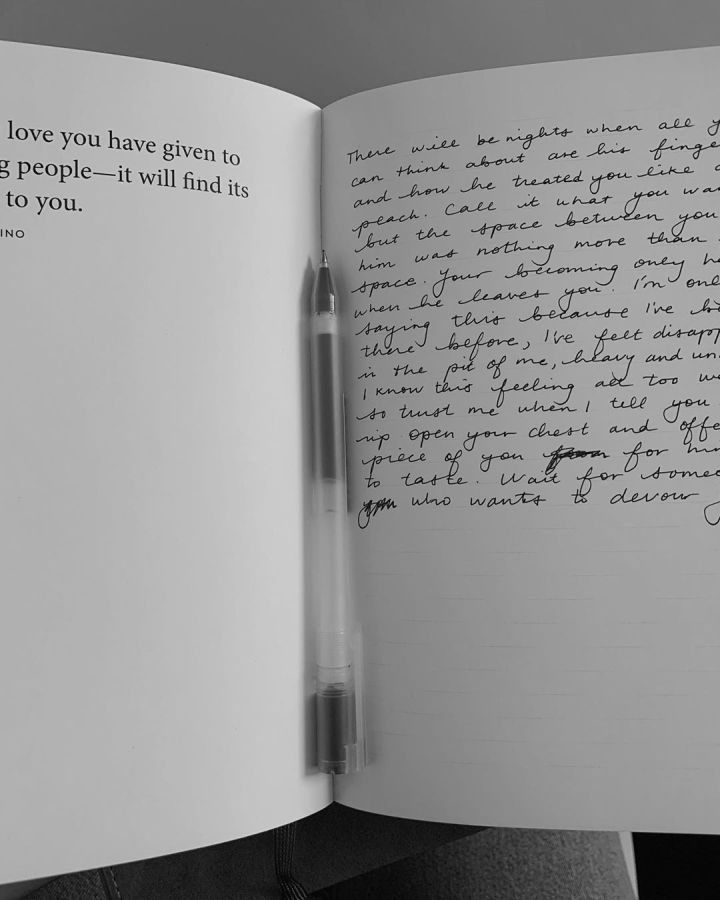 love you have given to
g people—it will find its
to you.
INO
There will be nights when all y
can think about are his finge
and how he treated you like a
peach. Call it what you wan
but the space between you
him was nothing more than
space. Your becoming only ha
when he leaves you. I'm onl
saying this because I've be
there before, I've felt disapp
in the pit of me, heavy and un
I know this feeling all too we
so trust me when I tell you
rip open your chest and offe
piece of you for him
to taste. Wait for someo
who wants to devour y